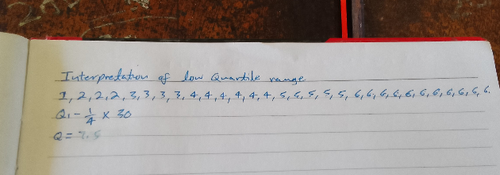 Interpretation of low Quartile range
1, 2, 2, 2, 3, 3, 3, 3, 4, 4, 4, 4, 4, 4, 5, 5, 5, 5, 5, 6, 6, 6, 6, 6, 6, 6, 6, 6, 6, 6.
Q1 - 1/4 x 30
Q = 7.5